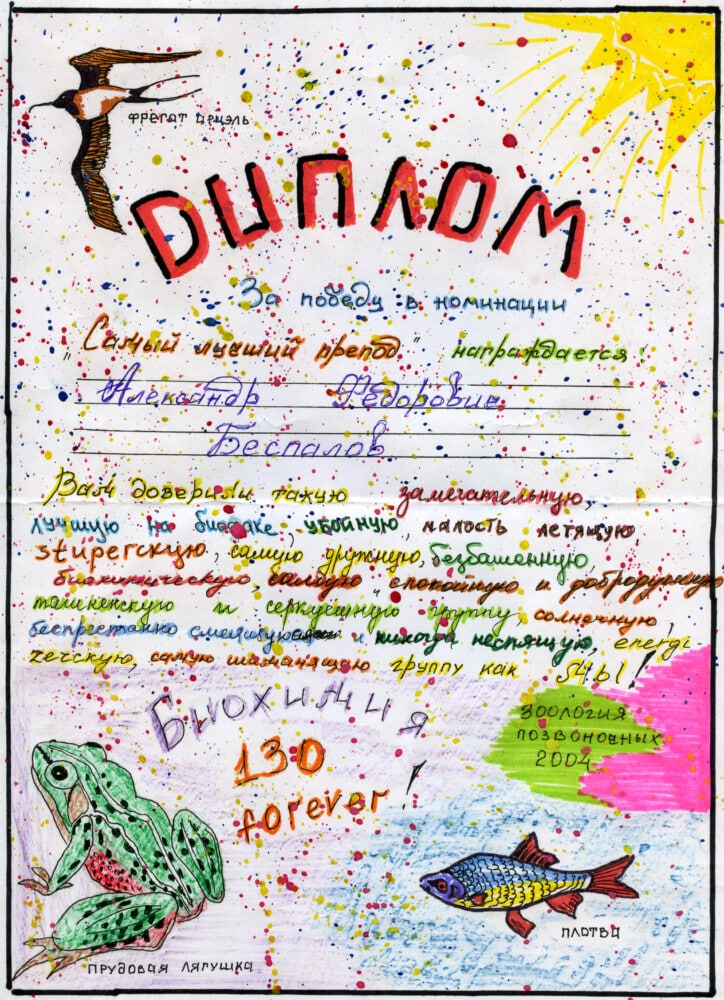 ФРЕГАТ АРИЭЛЬ
ДИПЛОМ
За победу в номинации
"Самый лучший препод" награждается:
Александр Федорович
Беспалов
Вам доверили такую замечательную,
лучшую на биофаке, убойную, малость летящую,
stuperскую, самую дружную, безбашенную,
биохимическую, самую спокойную и добродушную,
группу, солнечную,
беспрестанно и никогда неспящую, energi
ческую, самую шаманящую группу как МЫ!
Биохимия
130
forever!
ЗООЛОГИЯ
ПОЗВОНОЧНЫХ
2004
ПЛОТВА
ПРУДОВАЯ ЛЯГУШКА